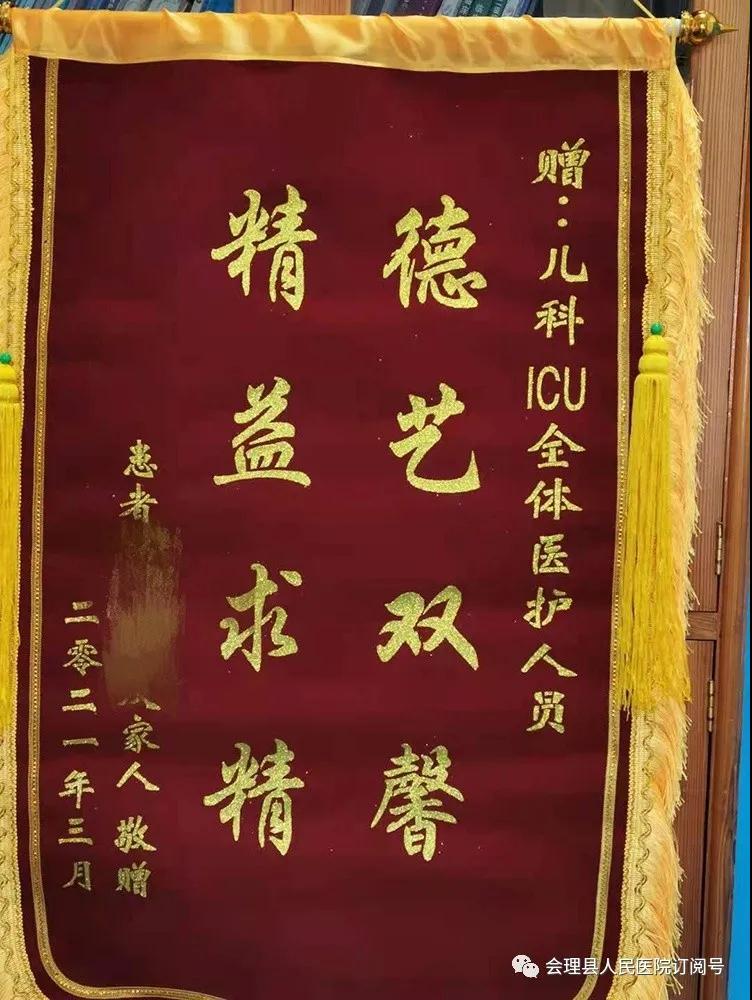 赠：儿科ICU全体医护人员
德艺双馨
精益求精
患者
家人 敬赠
二零二一年三月
会理县人民医院订阅号